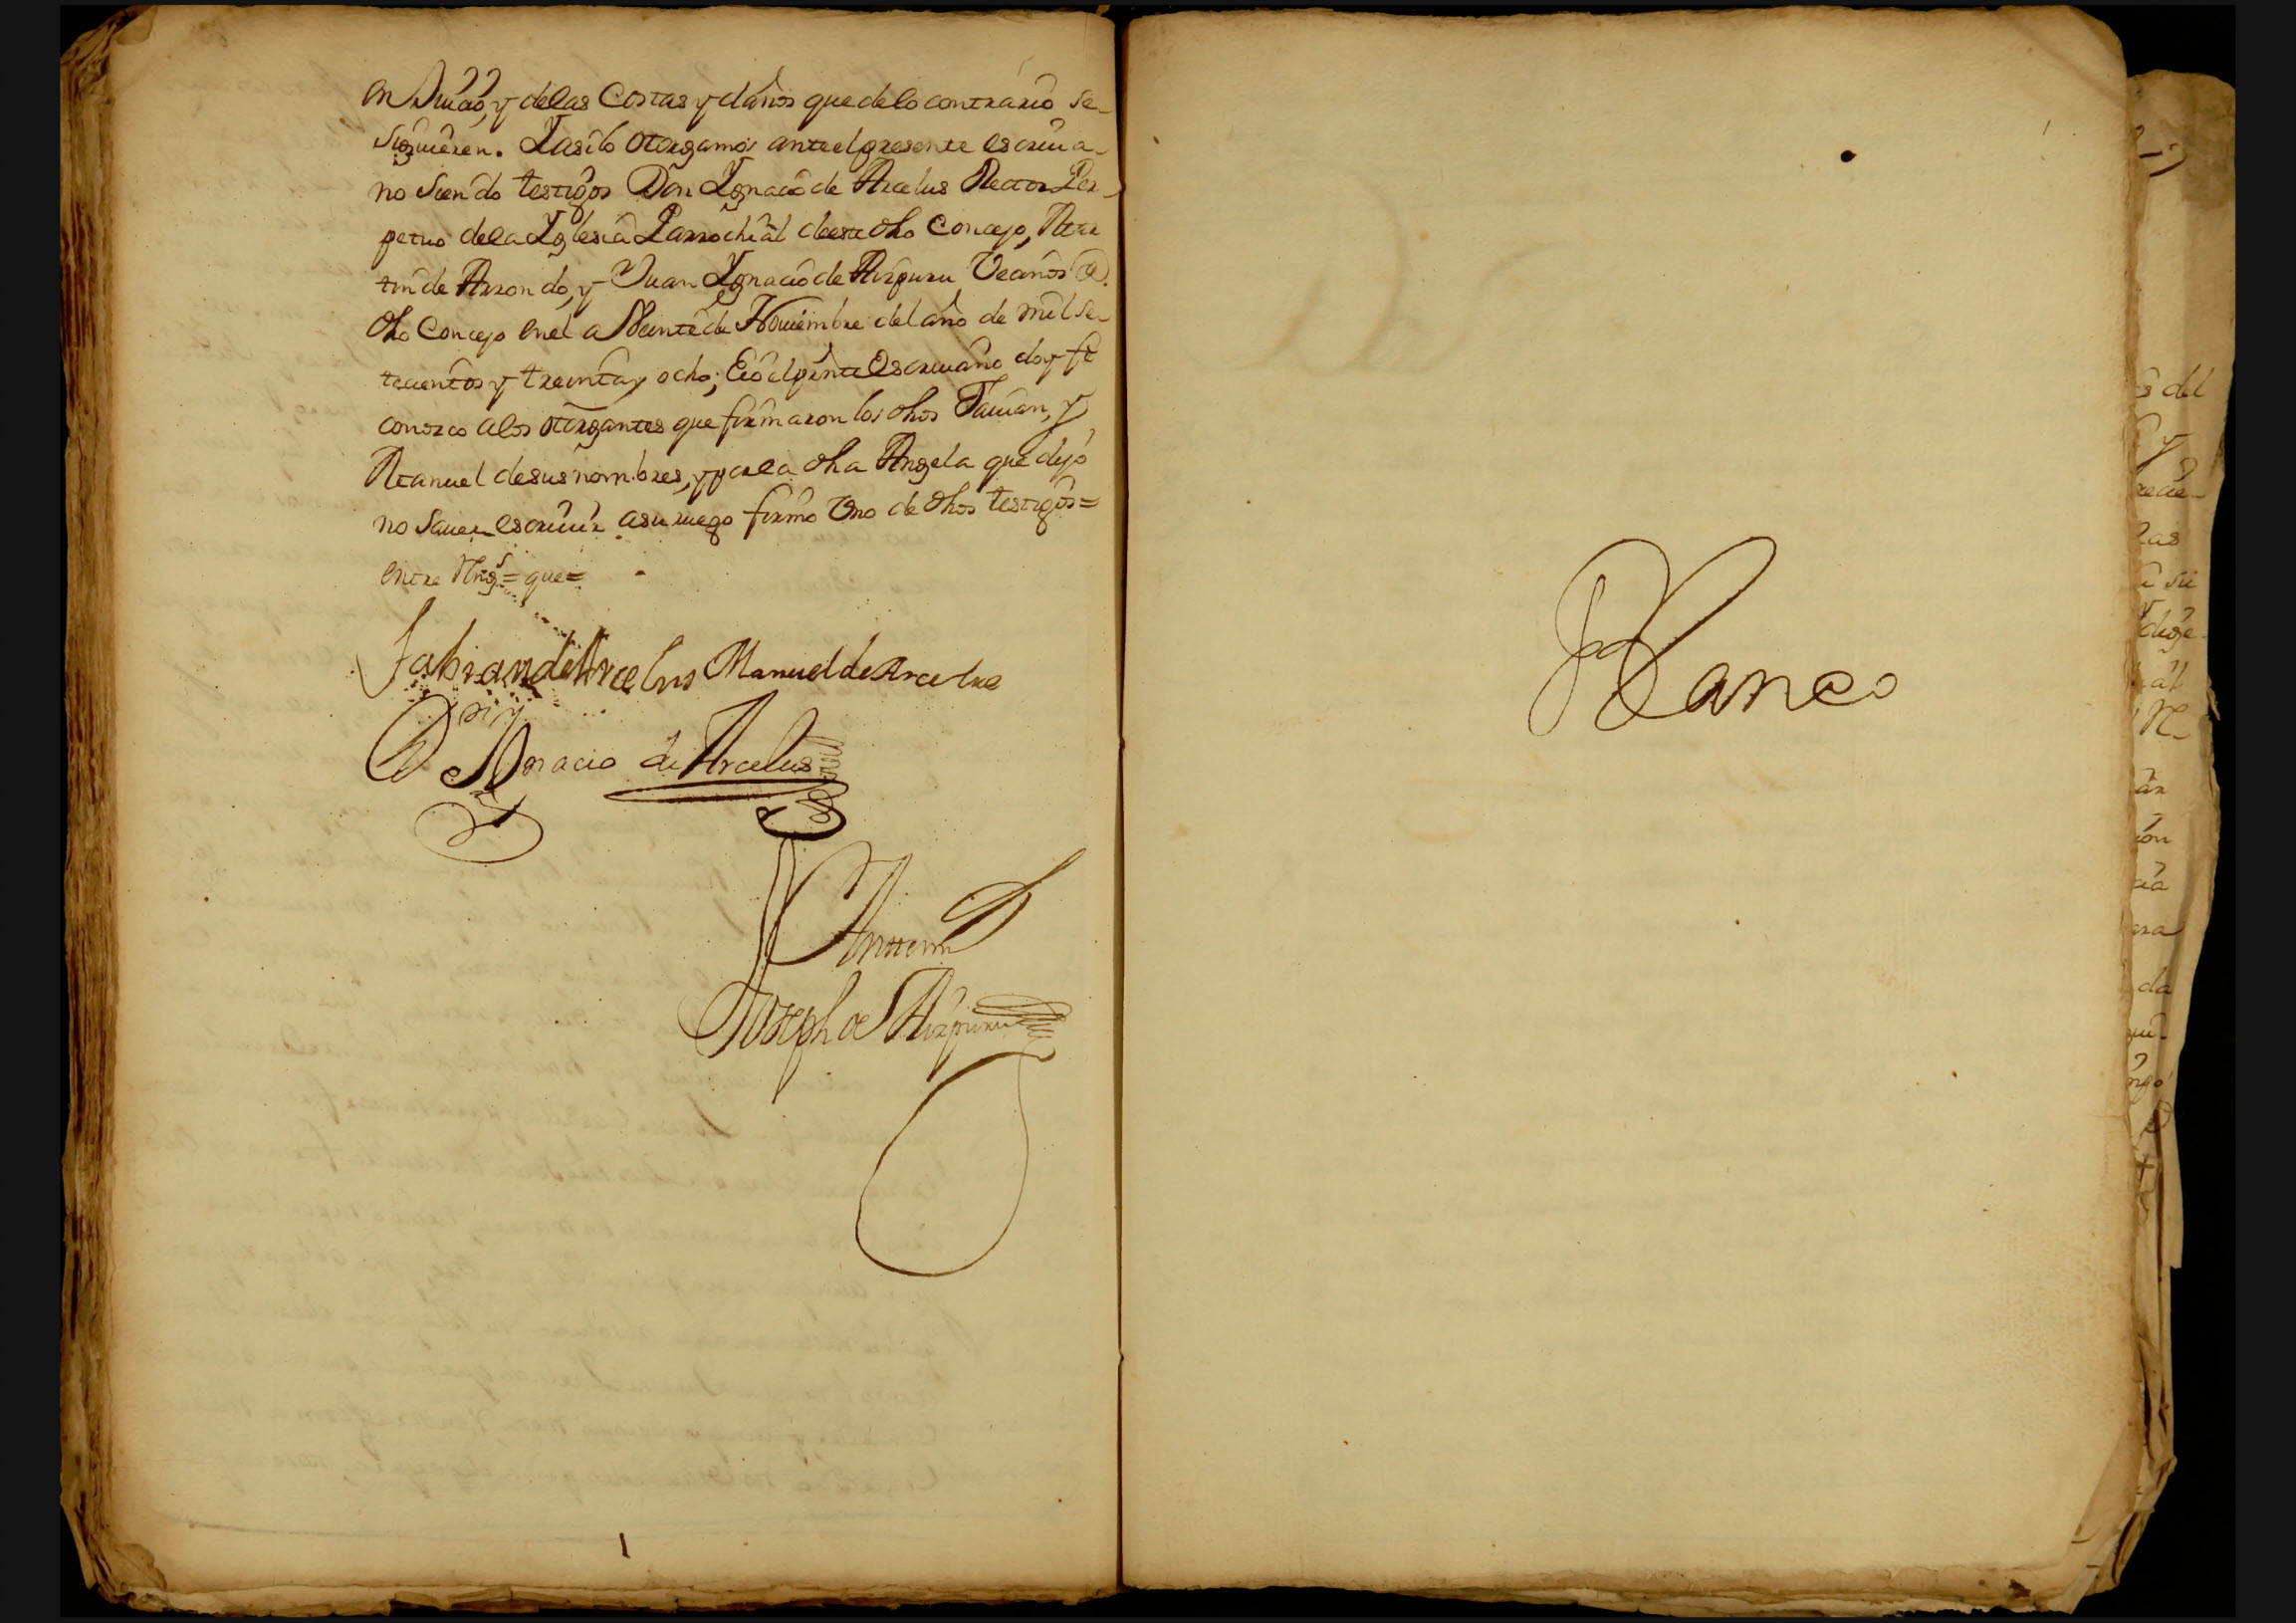 en Juicio, y delas Costas y daños que delo contrario se
siguieren. Y asi lo otorgamos ante el presente escriua
no siendo testigos Don Ygnacio de Arcelus Rector Per
petuo dela Yglesia Parrochial deeste dho Concejo, Mar
tin de Arrondo, y Juan Ygnacio de Aizpuru Vecinos de
dho Concejo en el a Veinte de Nouiembre del año de mil se
tecientos y treinta y ocho; E io el pnte escriuano doy fe
conozco alos otorgantes que firmaron los dhos Fauian, y
Manuel de sus nombres, y por la dha Angela que dijo
no sauer escriuir asu ruego firmo Vno de dhos testigos=
entre Rngs= que=
Fabian de Arcelus Manuel de Arcelus
Dn Ygnacio de Arcelus
Ante mi
Joseph de Aizpuru
Blanco
s del
y
las
su
al
an
ion
cia
ara
da